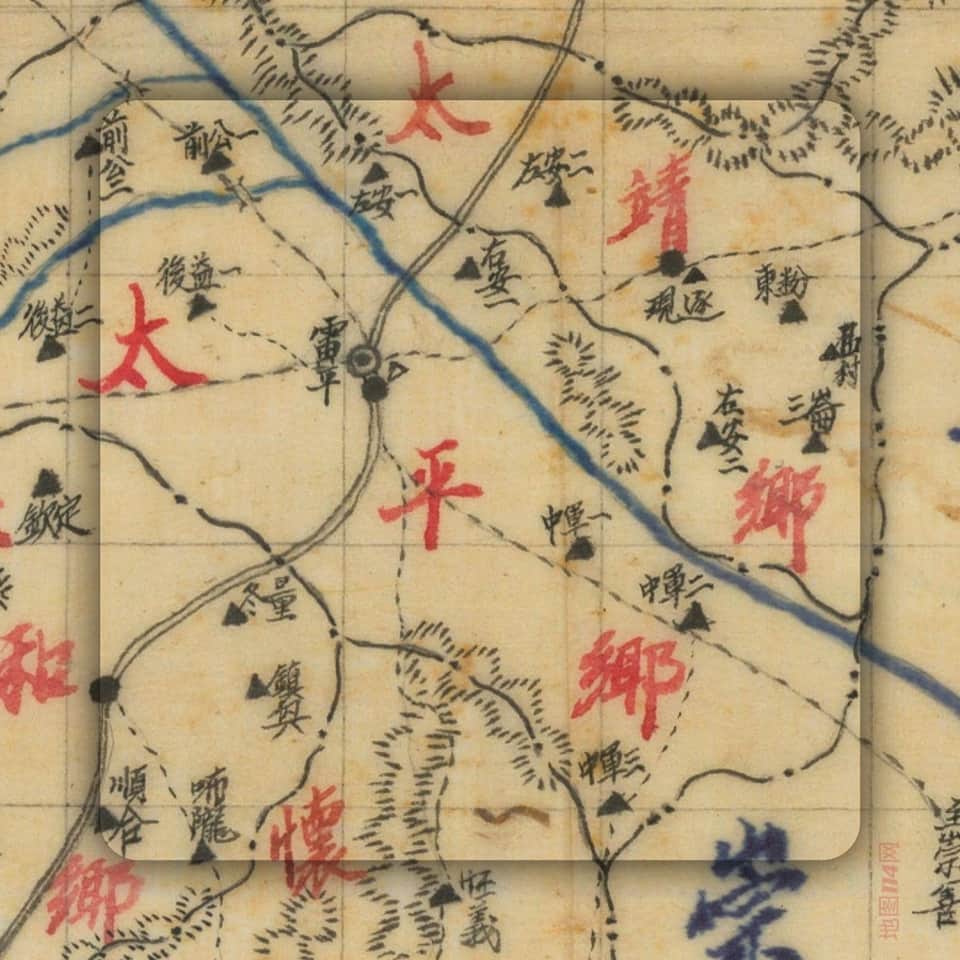 太
靖
鄉
太
平
鄉
和
鄉
懷
崇
前公二
前公一
左安一
左安二
右安一
右安二
後益一
後益二
雷平
現逐
東粉
三崙
欽定
中軍一
中軍二
中軍三
冬量
鎮與
順合
咘隴
旺義
至崇善
地图114网